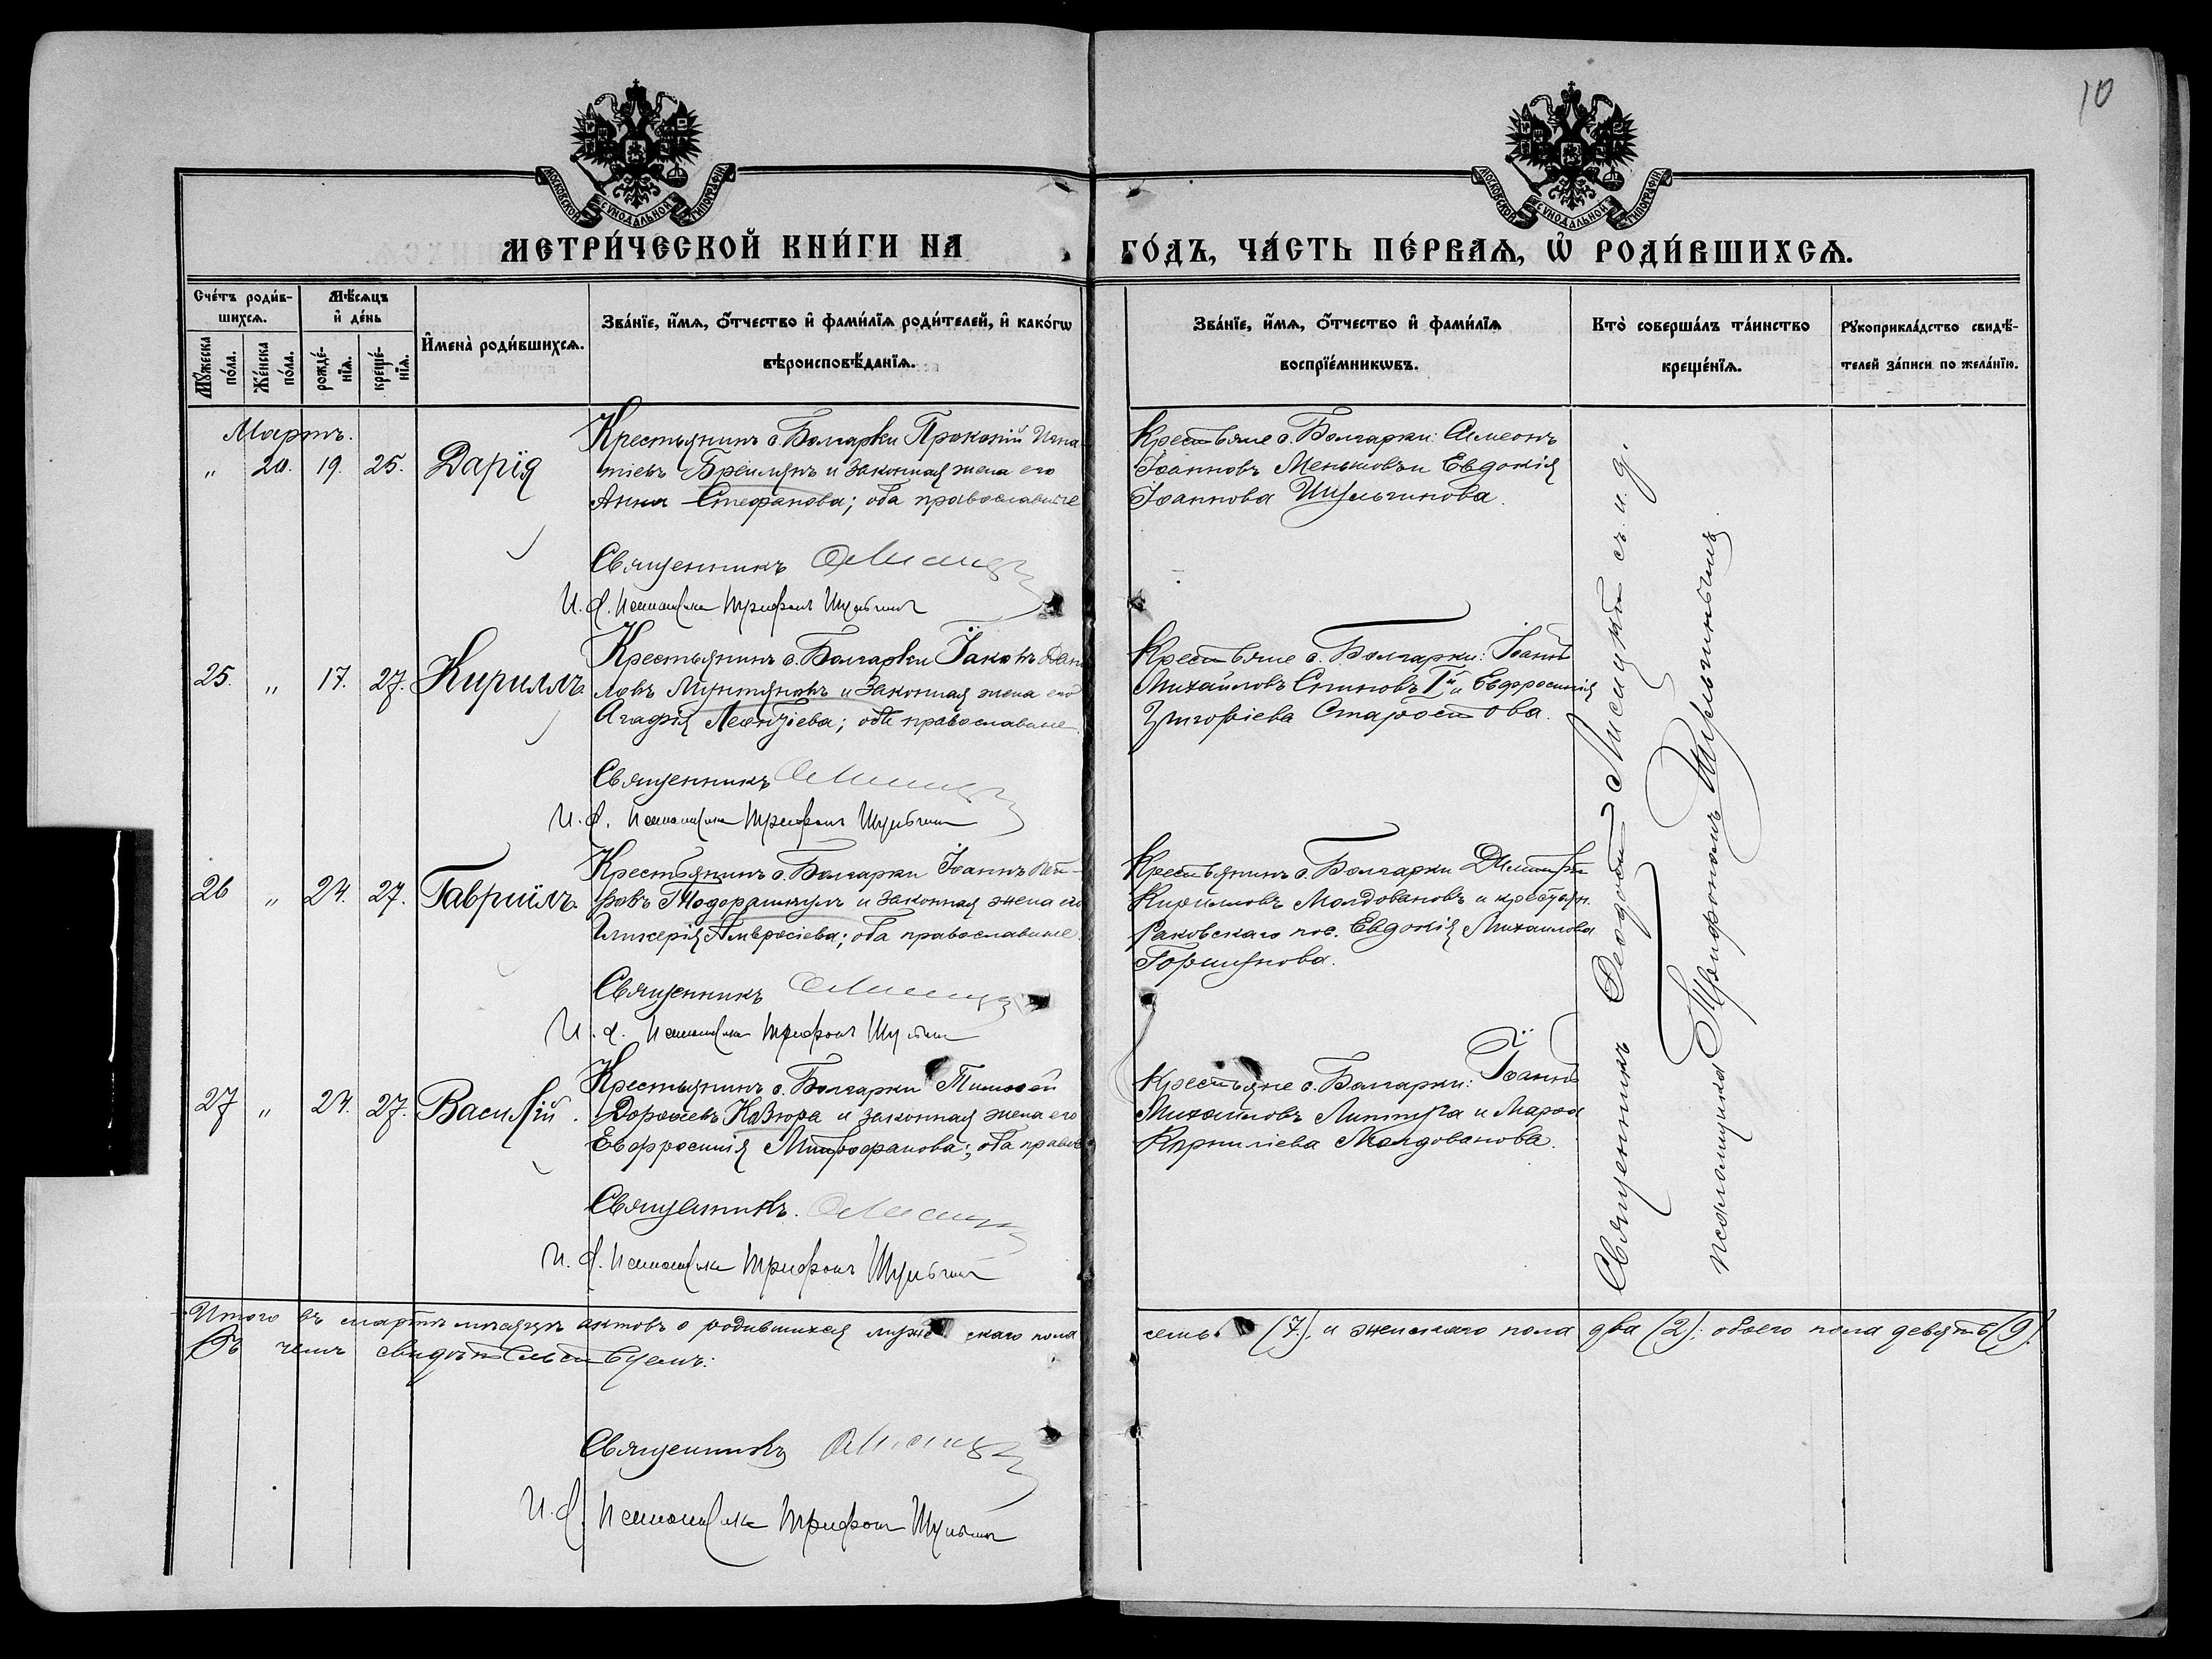 10
МОСКОВСКОЙ СѴНОДАЛЬНОЙ ТИПОГРАФІИ
МОСКОВСКОЙ СѴНОДАЛЬНОЙ ТИПОГРАФІИ
МЕТРИ́ЧЕСКОЙ КНИ́ГИ НА ГО́ДЪ, ЧА́СТЬ ПЕ́РВАѦ, Ѡ҆ РОДИ́ВШИХСѦ.
Сче́тъ роди́в-
шихсѧ.
Мꙋ́жеска по́ла.
Же́нска по́ла.
Мѣ́сѧцъ
и҆ де́нь
рожде́-
нїѧ.
креще́-
нїѧ.
И҆мена̀ роди́вшихсѧ.
Зва́нїе, и҆́мѧ, ѻ҆́тчество и҆ фами́лїѧ роди́телей, и҆ како́гѡ
вѣроисповѣ́данїѧ.
Зва́нїе, и҆́мѧ, ѻ҆́тчество и҆ фами́лїѧ
воспрїе́мникѡвъ.
Кто̀ соверша́лъ та́инство
креще́нїѧ.
Рꙋкоприкла́дство свидѣ́-
телей за́писи по жела́нїю.
Мартъ.
„ 20. 19. 25. Дарія
Крестьянинъ с. Болгарки Прокопій Игна
тіевъ и законная жена его
Анна Стефанова; оба православные
Священникъ
И. д. псаломщика Трифонъ Шульгинъ
Крестьяне с. Болгарки: Симеонъ
Іоанновъ Меньшовъ и Евдокія
Іоаннова Шульгинова.
25. „ 17. 27. Кириллъ.
Крестьянинъ с. Болгарки Іаковъ Дани
ловъ Мунтяновъ и законная жена его
Агафія Леонтіева; оба православные.
Священникъ
И. д. псаломщика Трифонъ Шульгинъ
Крестьяне с. Болгарки: Іоаннъ
Михайловъ Спиновъ Iй и Евфросинія
Григоріева Старостова.
26 „ 24. 27. Гавріилъ.
Крестьянинъ с. Болгарки Іоаннъ Пет-
ровъ и законная жена его
Гликерія Амвросіева; оба православные.
Священникъ
И. д. псаломщика Трифонъ Шульгинъ
Крестьянинъ с. Болгарки Димитрій
Кирилловъ Молдовановъ и крестьян.
Раковскаго пос. Евдокія Михаилова
Горшунова.
27 „ 24. 27. Василій.
Крестьянинъ с. Болгарки Тимоѳей
Дороѳеевъ Кавюра и законная жена его
Евфросинія Митрофанова; оба правос
Священникъ.
И. д. псаломщика Трифонъ Шульгинъ
Крестьяне с. Болгарки: Іоаннъ
Михаиловъ и Марѳа
Корниліева Молдованова.
Священникъ Ѳеодотъ Лисицкій съ и. д.
псаломщика Трифономъ Шульгинымъ.
Итого въ мартѣ мѣсяцѣ актовъ о родившихся мужескаго пола семь (7), и женскаго пола два (2); обоего пола девять (9).
Въ чемъ свидѣтельствуемъ:
Священникъ
И. д. псаломщика Трифонъ Шульгинъ